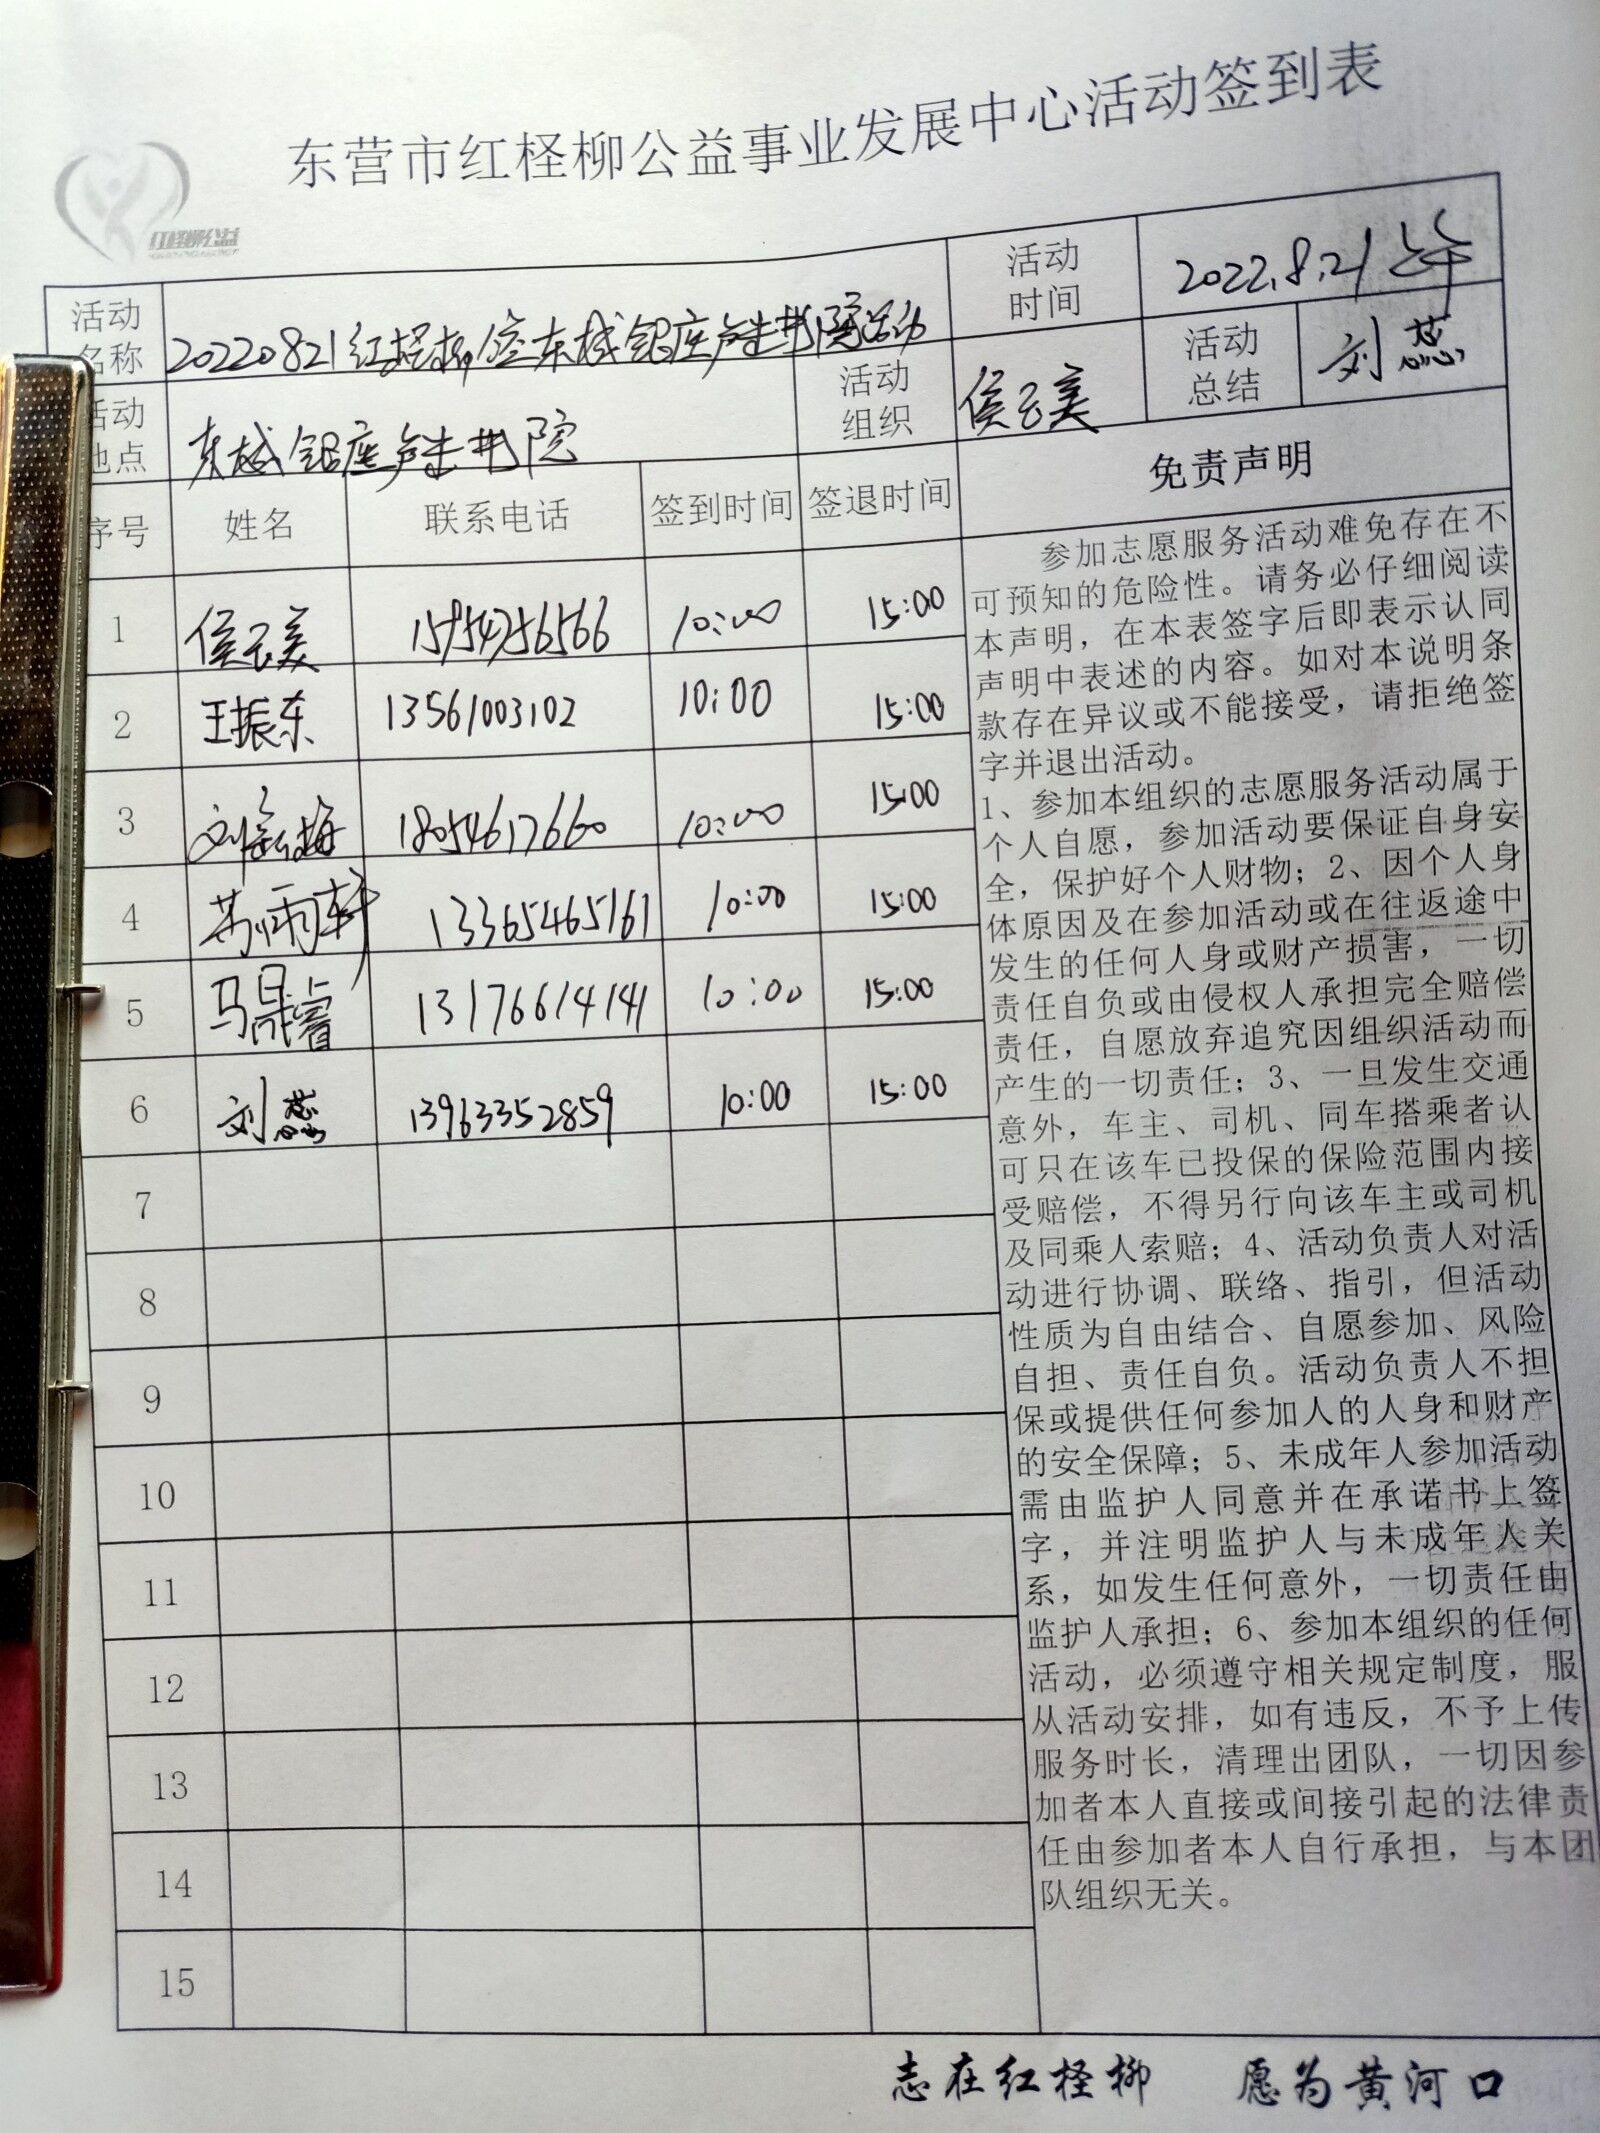 东营市红柽柳公益事业发展中心活动签到表
红柽柳公益
活动名称 20220821红柽柳 东城银座 书院活动 活动时间 2022.8.21上午
活动地点 东城银座 书院 活动组织 侯玉美 活动总结 刘蕊
序号 姓名 联系电话 签到时间 签退时间 免责声明
1 侯玉美 15954756566 10:00 15:00
2 王振东 13561003102 10:00 15:00
3 刘 梅 18054617660 10:00 15:00
4 苏雨轩 13365465161 10:00 15:00
5 马晟睿 13176614141 10:00 15:00
6 刘蕊 13963352859 10:00 15:00
7
8
9
10
11
12
13
14
15
参加志愿服务活动难免存在不
可预知的危险性。请务必仔细阅读
本声明，在本表签字后即表示认同
声明中表述的内容。如对本说明条
款存在异议或不能接受，请拒绝签
字并退出活动。
1、参加本组织的志愿服务活动属于
个人自愿，参加活动要保证自身安
全，保护好个人财物；2、因个人身
体原因及在参加活动或在往返途中
发生的任何人身或财产损害，一切
责任自负或由侵权人承担完全赔偿
责任，自愿放弃追究因组织活动而
产生的一切责任；3、一旦发生交通
意外，车主、司机、同车搭乘者认
可只在该车已投保的保险范围内接
受赔偿，不得另行向该车主或司机
及同乘人索赔；4、活动负责人对活
动进行协调、联络、指引，但活动
性质为自由结合、自愿参加、风险
自担、责任自负。活动负责人不担
保或提供任何参加人的人身和财产
的安全保障；5、未成年人参加活动
需由监护人同意并在承诺书上签
字，并注明监护人与未成年人关
系，如发生任何意外，一切责任由
监护人承担；6、参加本组织的任何
活动，必须遵守相关规定制度，服
从活动安排，如有违反，不予上传
服务时长，清理出团队，一切因参
加者本人直接或间接引起的法律责
任由参加者本人自行承担，与本团
队组织无关。
志在红柽柳 愿为黄河口